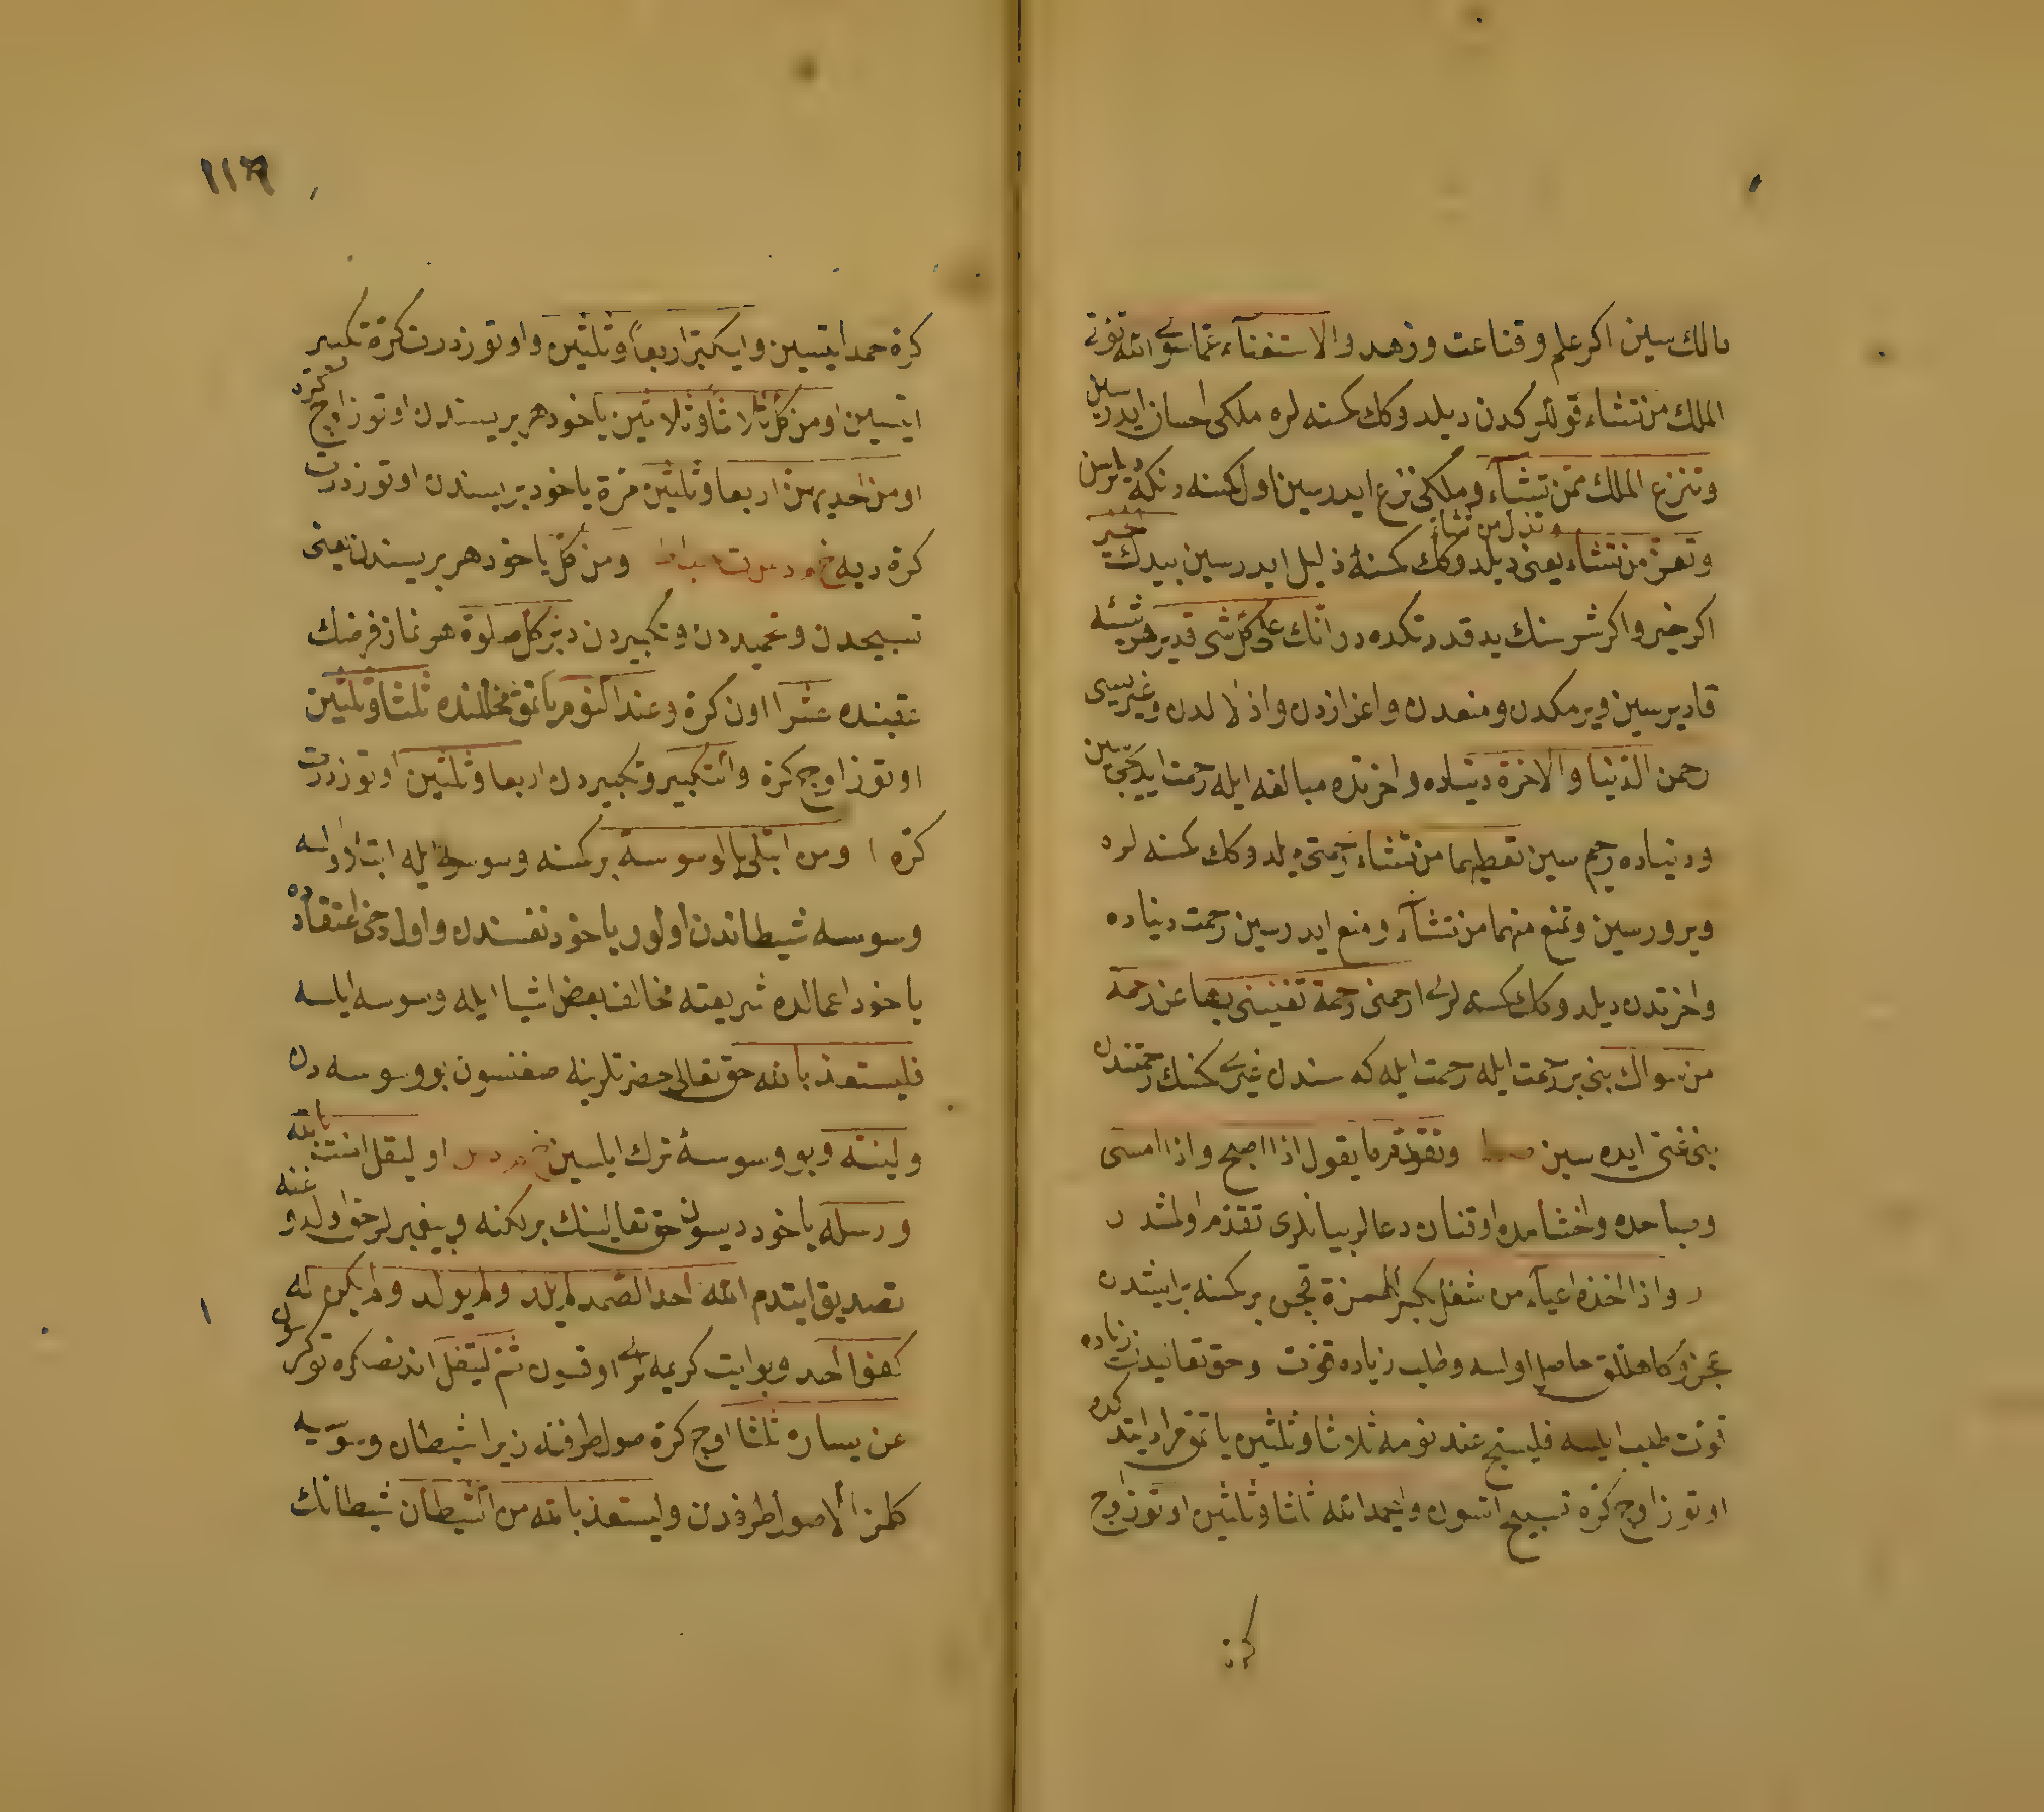 مالك سين اكر علم و قناعت و زهد و الاستغنآء عمّا سوى الله تؤتى
الملك من تشاء قوللركدن ديلدوكك كمسنه لره ملكى احسان ايدرسين
و تنزع الملك ممّن تشآء و ملكى نزع ايدرسين اول كمسنه دنكه ديلرسن
و تعزّ من تشاء و تذل من تشاء يعنى ديلدوكك كمسنۀ ذليل ايدرسين بيدك الخير
اكر خير و اكر شر سنك يد قدرتكده در انّك على كلّ شى قدير هر شيئه
قاديرسين ويرمكدن و منعدن و اعزازدن و اذلالدن و غيريسى
رحمن الدّنيا و الاخرة دنياده و اخرتده مبالغه ايله رحمت ايديجى سين
و دنياده رحيم سين تعطيهما من تشاء رحمتى ديلدوكك كمسنه لره
ويرورسين و تمنع منهما من تشآء و منع ايدرسين رحمت دنياده
و اخرتدن ديلدوكك كمسنه لرى ارحمنى رحمة تغنينى بها عن رحمة
من سواك بنى بر رحمت ايله رحمت ايله كه سندن غيرى كمسنك رحمتندن
بنى غنى ايده سين و تقدّم ما يقول اذا اصبح و اذا امسى
و صباحده و اخشامده اوقنان دعالر بيانلرى تقدّم اولمشدر
و اذا اخذه اعيآء من شغل بكسر الهمزة قچن بر كمسنه بر ايشدن
عجز و كاهللق حاصل اولسه و طلب زياده قوّت و حق تعاليدن زياده
قوّت طلب ايلسه فليسبّح عند نومه ثلاثا و ثلثين ياتمق مراد ايتدكده
اوتوز اوچ كرّه تسبيح اتسون و ليحمد الله ثلثا و ثلثين اوتوز اوچ
كرّه
١١٦
كرّه حمد ايتسين و ليكبّر اربعاً و ثلثين و اوتوز درت كرّة تكبير
ايتسين او من كلّ ثلاثا و ثلاثين ياخود هر بريسندن اوتوز اوچ كرّه
او من احديهنّ اربعا و ثلثين مرّة ياخود بريسندن اوتوز درت
كرّة ديه و من كلّ ياخود هر بريسندن يعنى
تسبيحدن و تحميددن و تكبيردن دبر كلّ صلوة هر نماز فرضنك
عقبنده عشرا اون كرّة و عند النّوم ياتمق محللنده ثلثا و ثلثين
اوتوز اوچ كرّة و التّكبير و تكبيردن اربعا و ثلثين اوتوز درت
كرّه و من ابتلى بالوسوسة بر كمسنه وسوسه ايله ابتلا اولسه
وسوسه شيطاندن اولور ياخود نفسندن و اول دخى اعتقادده
ياخود اعمالده شريعته مخالف بعض اشيا ايله وسوسه ايلسه
فليستعذ بالله حق تعالى حضرتلرينه صغنسون بو وسوسه دن
و لينته و بو وسوسۀ ترك ايلسين او ليقل امنت بالله
و رسله ياخود ديسون حق تعالينك برلكنه و پيغمبرلر حق اولدوغنه
تصديق ايتدم الله احد الصّمد لم يلد و لم يولد و لم يكن له
كفوا احد و بو ايت كريمه لرى اوقسون ثمّ ليتفل اندنصكره توكرسون
عن يساره ثلثا اوچ كرة صول طرفنه زيرا شيطان وسوسه
كلمز الّا صول طرفدن و ليستعذ بالله من الشّيطان شيطانك